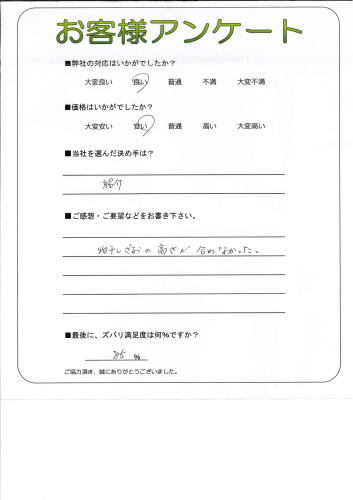 お客様アンケート
■弊社の対応はいかがでしたか？
大変良い 良い 普通 不満 大変不満
■価格はいかがでしたか？
大変安い 安い 普通 高い 大変高い
■当社を選んだ決め手は？
紹介
■ご感想・ご要望などをお書き下さい。
物干しざおの高さが 合わなかった。
■最後に、ズバリ満足度は何%ですか？
85 %
ご協力頂き、誠にありがとうございました。